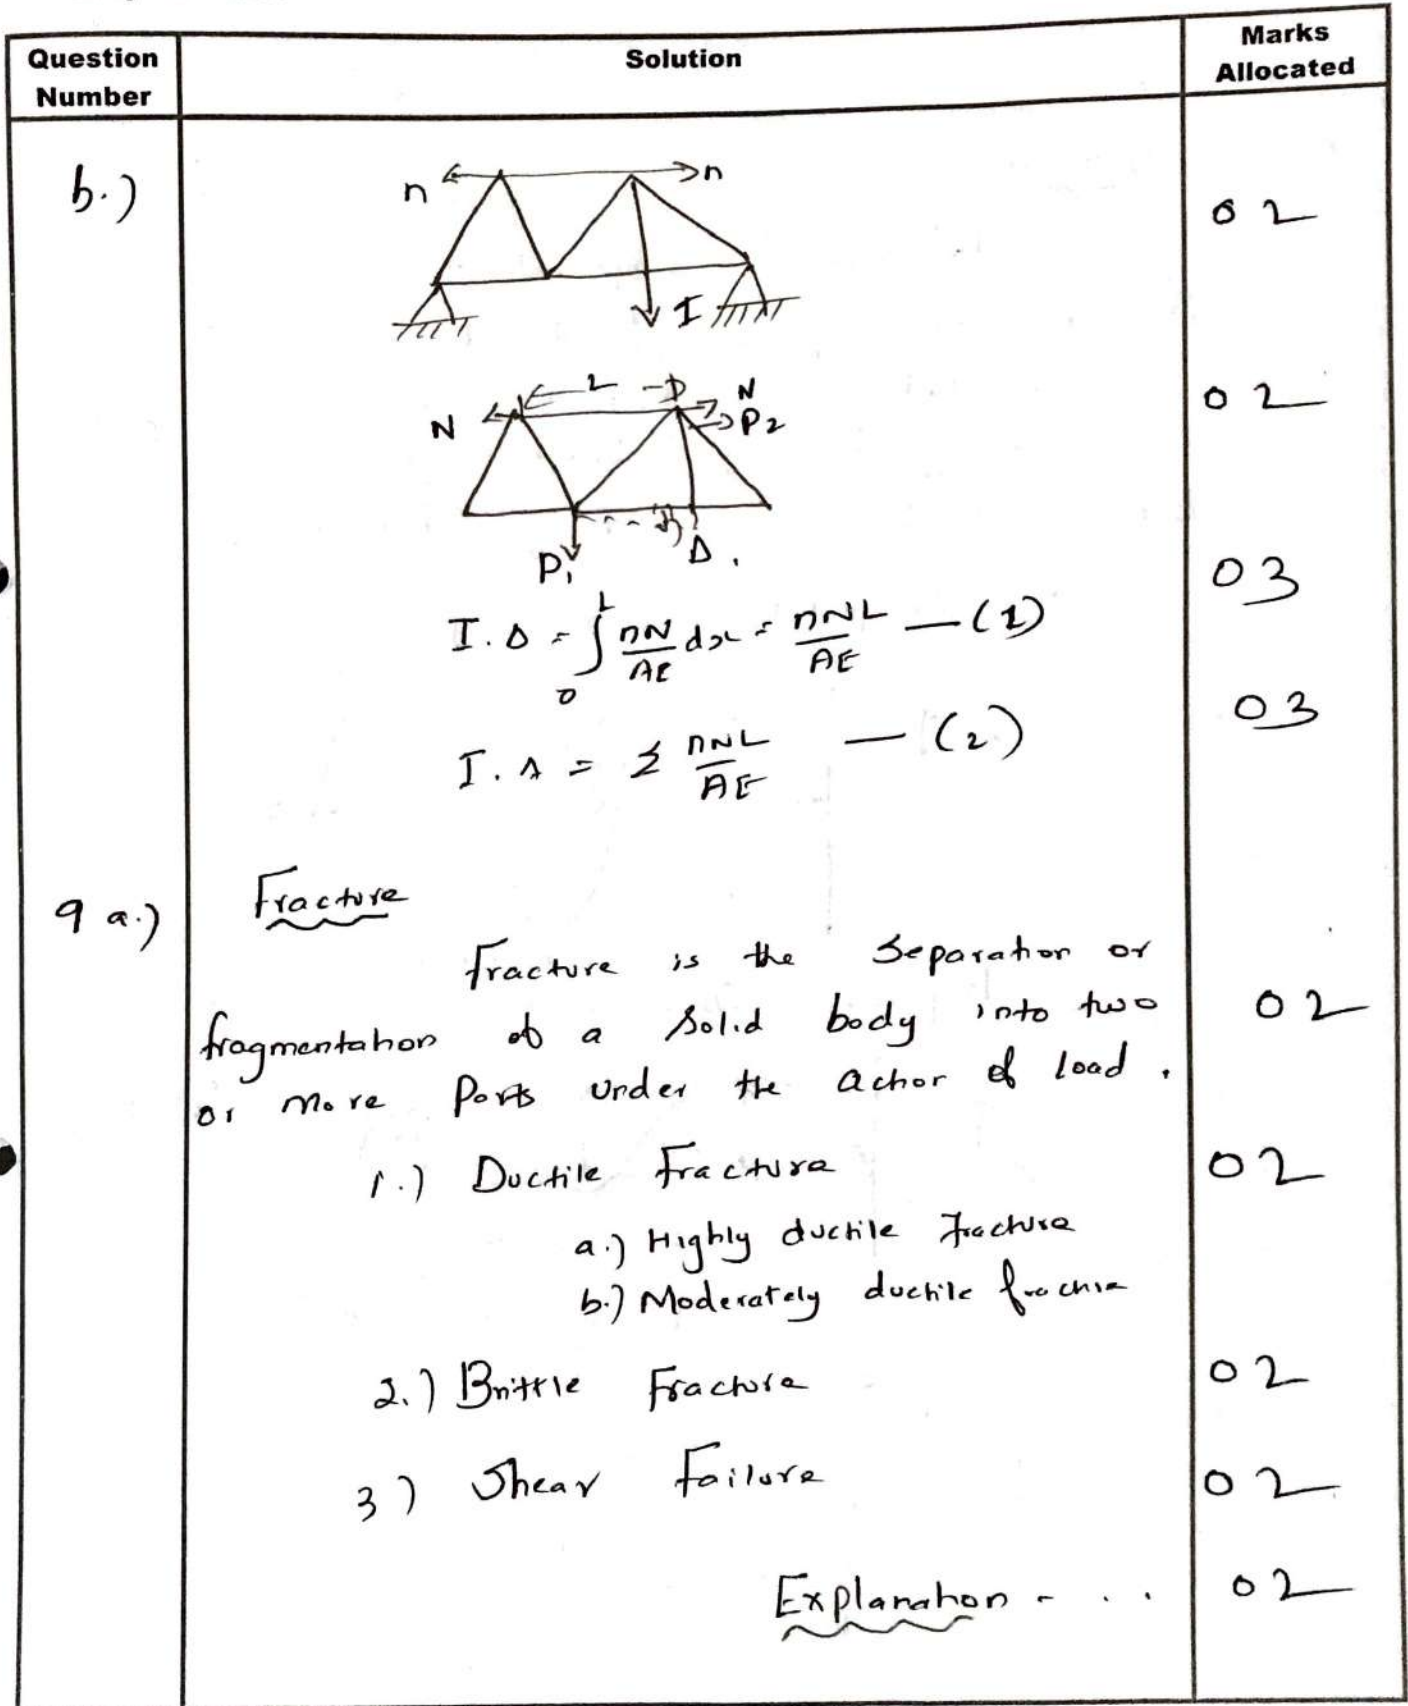 Question Number
Solution
Marks Allocated
b.)
n
n
I
02
L
N
N
P2
P1
Δ
02
I.Δ = ∫₀ᴸ nN/AE dx = nNL/AE — (1)
03
I.Δ = Σ nNL/AE — (2)
03
9 a.)
Fracture
Fracture is the separation or
fragmentation of a solid body into two
or more parts under the action of load.
02
1.) Ductile Fracture
02
a.) Highly ductile fracture
b.) Moderately ductile fracture
2.) Brittle Fracture
02
3) Shear Failure
02
Explanation - . .
02